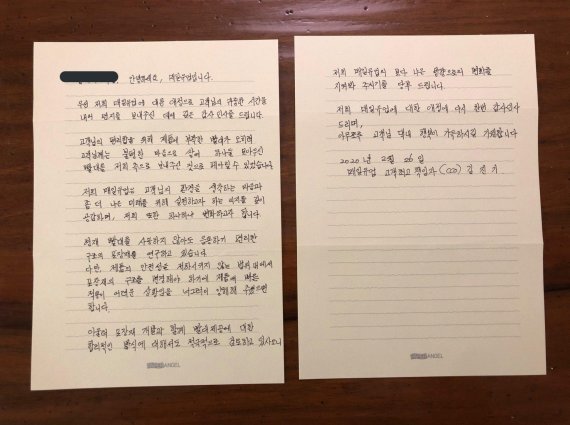 안녕하세요, 매일유업입니다.
우선 저희 매일유업에 대한 애정으로 고객님의 귀중한 시간을
내어 편지를 보내주신 데에 깊은 감사 인사를 드립니다.
고객님의 편리함을 위해 제품에 부착한 빨대가 오히려
고객님께는 불편한 마음으로 쌓여 하나둘 모아두신
빨대를 저희 측으로 보내주신 것으로 헤아릴 수 있었습니다.
저희 매일유업은 고객님의 환경을 생각하는 마음과
좀 더 나은 미래를 위해 실천하고자 하는 의지를 깊이
공감하며, 저희 또한 하나하나 변화하고자 합니다.
현재 빨대를 사용하지 않아도 음용하기 편리한
구조의 포장재를 연구하고 있습니다.
다만, 제품의 안전성을 저하시키지 않는 범위 내에서
포장재의 구조를 변경해야 하기에 제품에 빠른
적용이 어려운 상황임을 너그러이 양해해 주셨으면
합니다.
이울러 포장재 개발과 함께 빨대 제공에 대한
합리적인 방식에 대해서도 적극적으로 검토하고 있사오니
ANGEL
저희 매일유업이 보다 나은 방향으로의 변화를
지켜봐 주시기를 당부 드립니다.
저희 매일유업에 대한 애정에 다시 한번 감사인사
드리며,
아무쪼록 고객님 댁내 평안이 가득하시길 기원합니다.
2020년 2월 26일
매일유업 고객최고책임자(CCO) 김진기
ANGEL